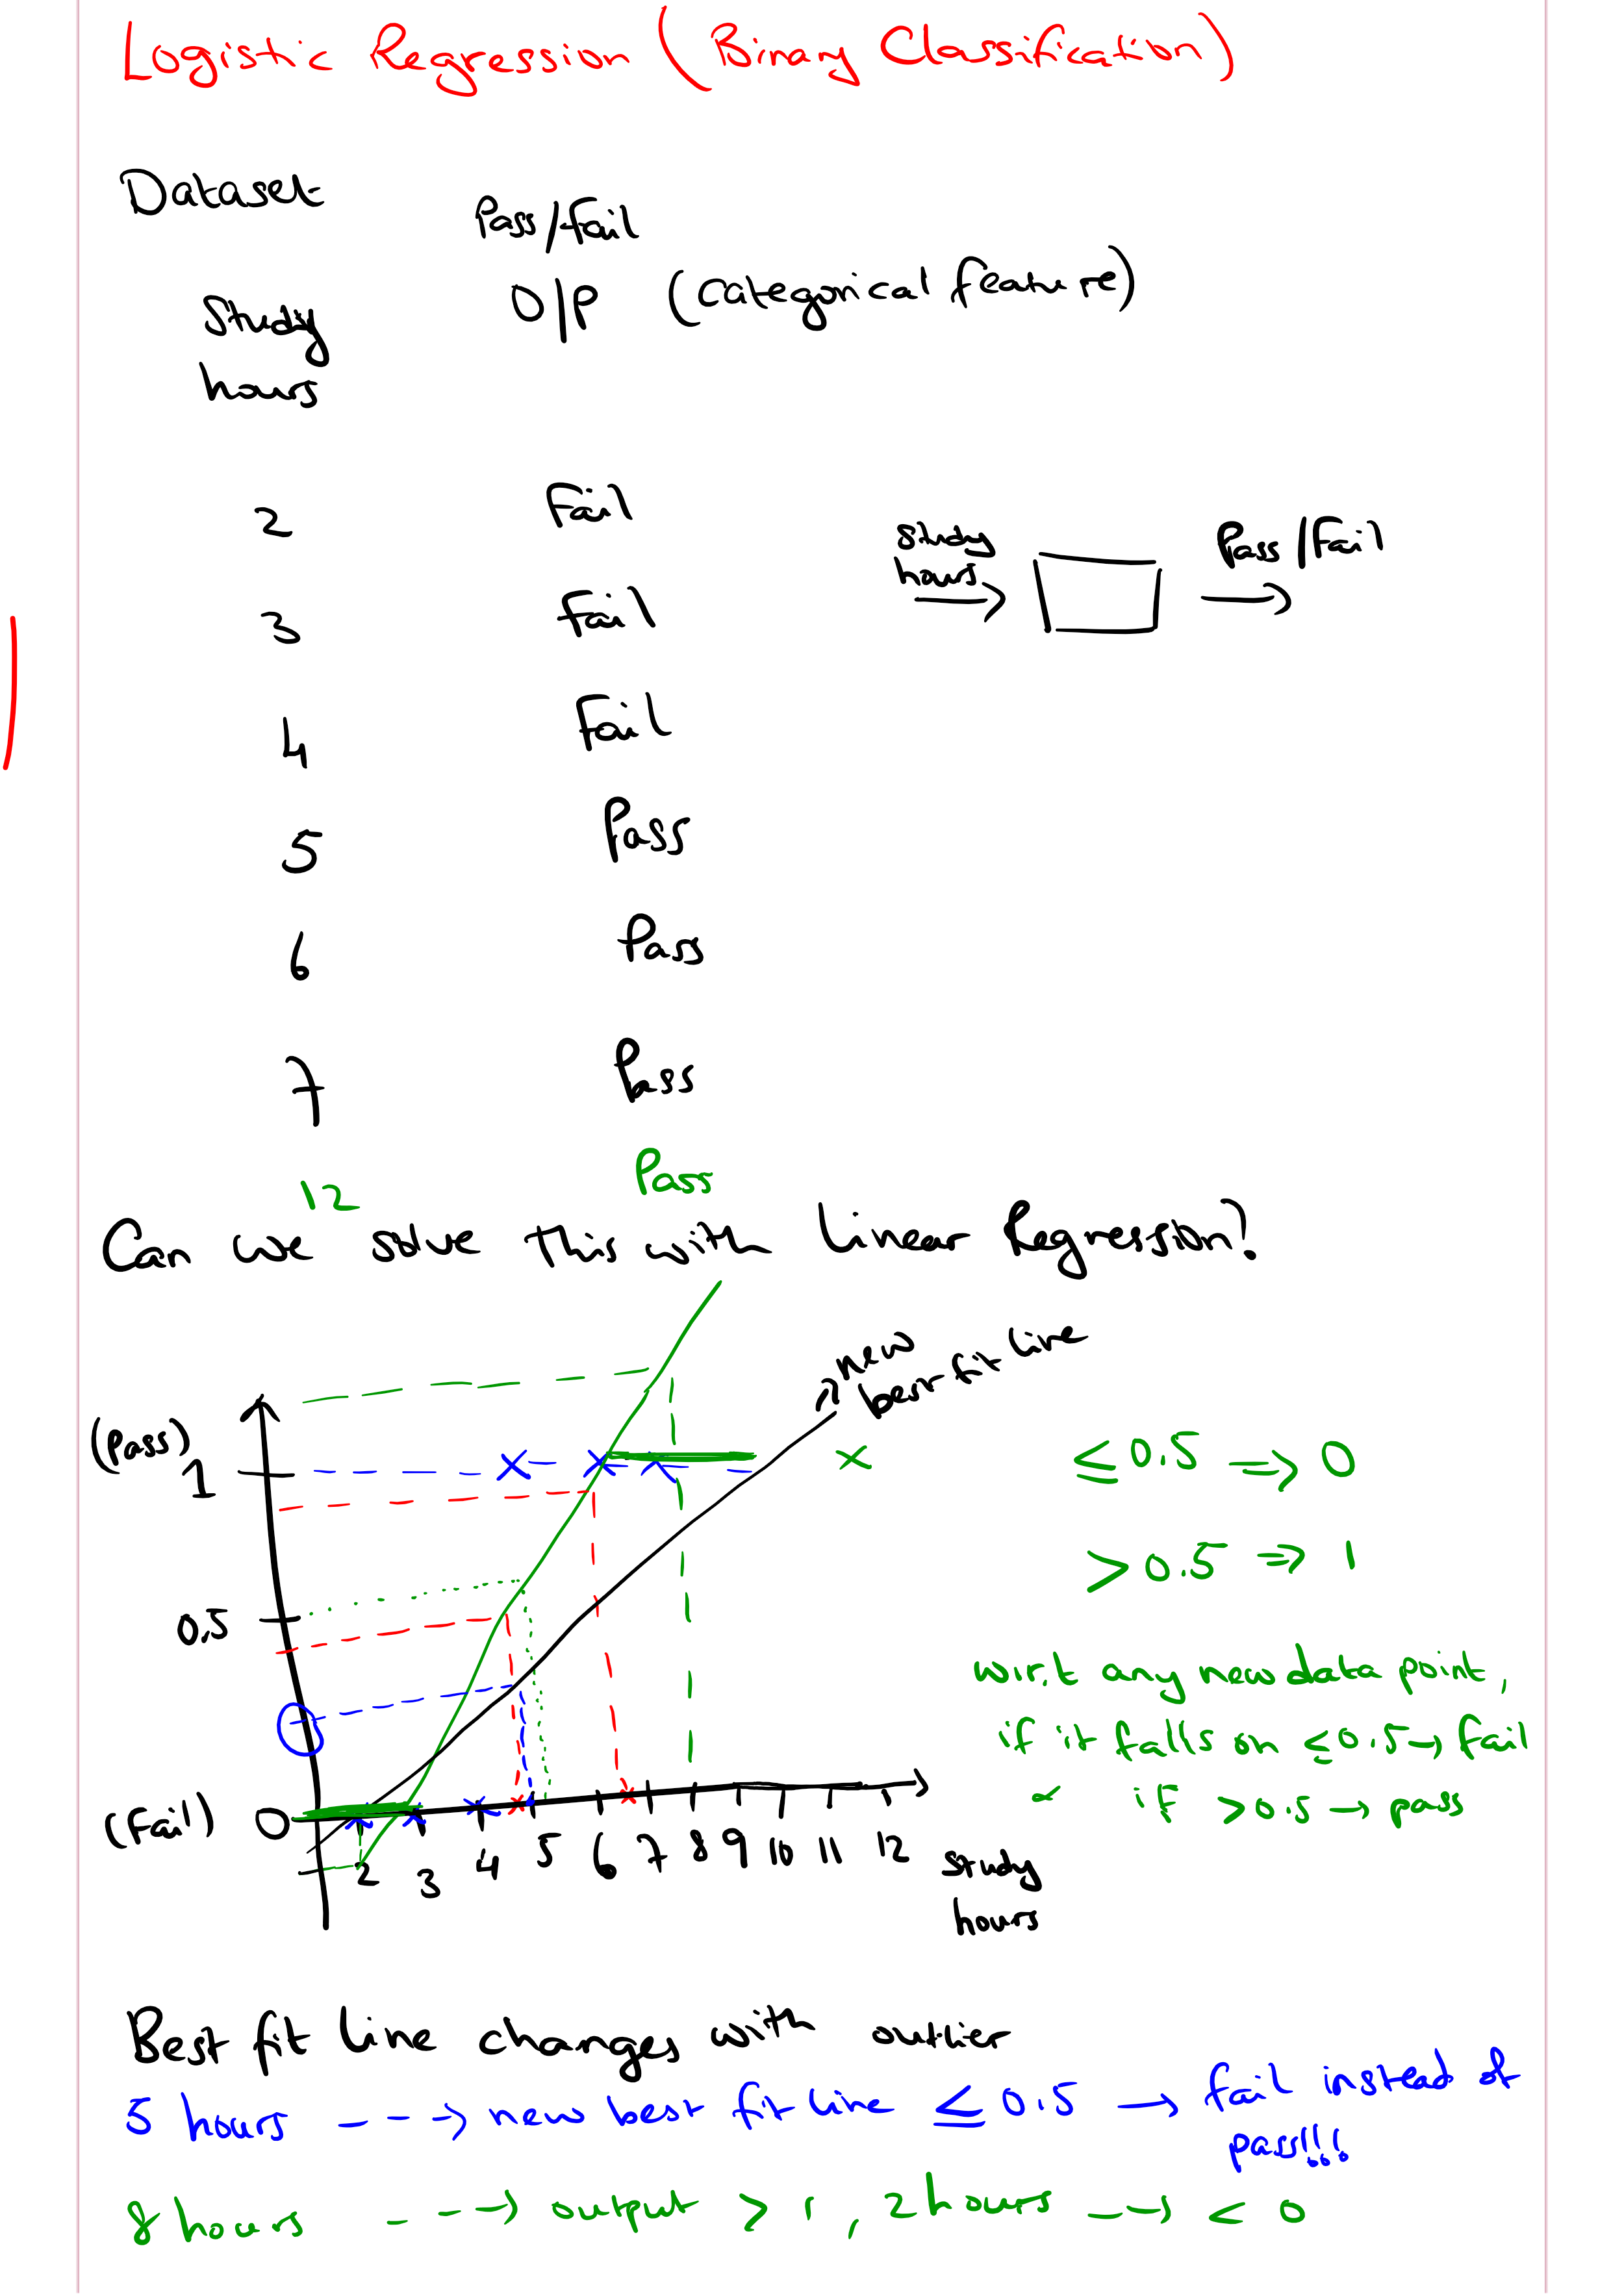 Logistic Regression (Binary Classification)
Dataset
Pass/Fail
Study hours
O/P (categorical feature)
2 Fail
3 Fail
4 Fail
5 Pass
6 Pass
7 Pass
12 Pass
study hours
Pass/Fail
Can we solve this with Linear Regression?
new
best fit line
(Pass)
1
0.5
(Fail) 0
2 3 4 5 6 7 8 9 10 11 12
study
hours
≤ 0.5 => 0
> 0.5 => 1
w.r.t any new data point,
if it falls on ≤ 0.5 → fail
if > 0.5 → pass
Best fit line changes with outlier
5 hours ---> new best fit line ≤ 0.5 → fail instead of
pass!!!
8 hours ---> output > 1, 2 hours --> < 0